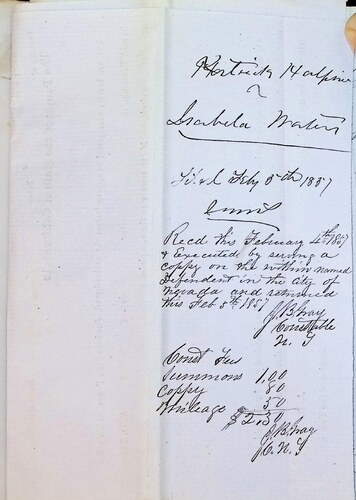 Patrick Halpine
v
Isabela Waters
Filed Feby 5th 1857
Recd this February 4th 1857
& Executed by serving a
coppy on the within named
Defendent in the City of
Nevada and returned
this Feb 5th 1857
J B Gray
Constable
N. T
Const Fees
Summons 1,00
Coppy 80
Mileage 50
$ 2.30
J B. Gray
C. N. T